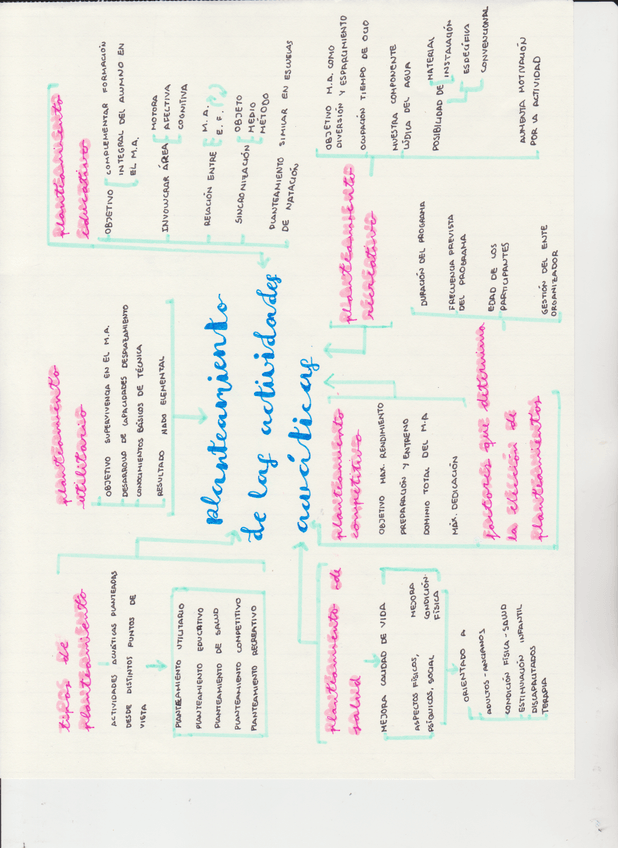 planteamiento
de las actividades
acuáticas
tipos de
planteamiento
ACTIVIDADES ACUÁTICAS PLANTEADAS
DESDE DISTINTOS PUNTOS DE
VISTA
PLANTEAMIENTO UTILITARIO
PLANTEAMIENTO EDUCATIVO
PLANTEAMIENTO DE SALUD
PLANTEAMIENTO COMPETITIVO
PLANTEAMIENTO RECREATIVO
planteamiento
utilitario
OBJETIVO SUPERVIVENCIA EN EL M.A.
DESARROLLO DE CAPACIDADES DESPLAZAMIENTO
CONOCIMIENTOS BÁSICOS DE TÉCNICA
RESULTADO NADO ELEMENTAL
planteamiento
educativo
OBJETIVO COMPLEMENTAR FORMACIÓN
INTEGRAL DEL ALUMNO EN
EL M.A.
INVOLUCRAR ÁREA MOTORA
AFECTIVA
COGNITIVA
RELACIÓN ENTRE M.A.
E.F.
SINCRONIZACIÓN OBJETO
MEDIO
MÉTODO
PLANTEAMIENTO SIMILAR EN ESCUELAS
DE NATACIÓN
planteamiento de
salud
MEJORA CALIDAD DE VIDA
ASPECTOS FÍSICOS,
PSÍQUICOS, SOCIAL
MEJORA
CONDICIÓN
FÍSICA
ORIENTADO A
ADULTOS-ANCIANOS
CONDICIÓN FÍSICA-SALUD
ESTIMULACIÓN INFANTIL
DISCAPACITADOS
TERAPIA
planteamiento
competitivo
OBJETIVO MAX. RENDIMIENTO
PREPARACIÓN Y ENTRENO
DOMINIO TOTAL DEL M.A
MÁX. DEDICACIÓN
planteamiento
recreativo
OBJETIVO M.A. COMO
DIVERSIÓN Y ESPARCIMIENTO
OCUPACIÓN TIEMPO DE OCIO
MUESTRA COMPONENTE
LÚDICA DEL AGUA
POSIBILIDAD DE MATERIAL
INSTALACIÓN
ESPECÍFICA
CONVENCIONAL
AUMENTA MOTIVACIÓN
POR LA ACTIVIDAD
factores que determina
la elección de
planteamientos
DURACIÓN DEL PROGRAMA
FRECUENCIA PREVISTA
DEL PROGRAMA
EDAD DE LOS
PARTICIPANTES
GESTIÓN DEL ENTE
ORGANIZADOR